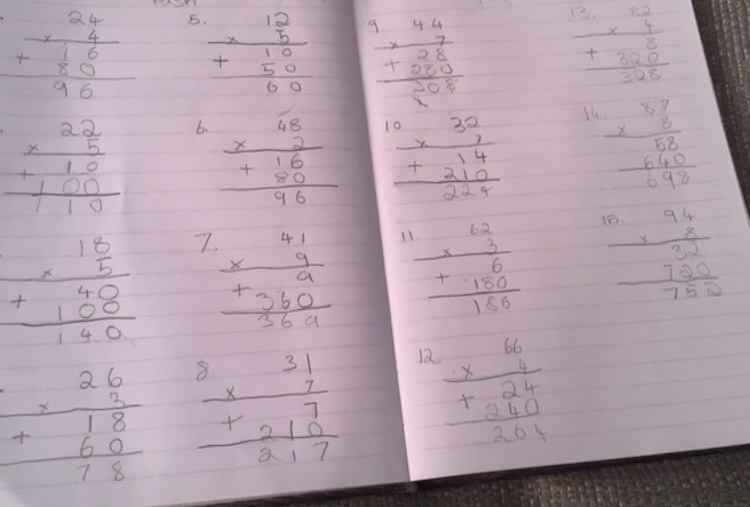 24
× 4
16
+ 80
96
22
× 5
+ 10
100
110
18
× 5
40
+ 100
140
26
× 3
18
+ 60
78
5. 12
× 5
10
+ 50
60
6. 48
× 2
+ 16
80
96
7. 41
× 9
9
+ 360
369
8. 31
× 7
7
+ 210
217
9 44
× 7
28
+ 280
208
x
10. 32
× 7
+ 14
210
224
11 62
× 3
+ 6
180
186
12 66
× 4
+ 24
240
264
13. 82
× 4
8
+ 320
328
14. 87
× 8
58
640
698
94
× 8
32
720
752